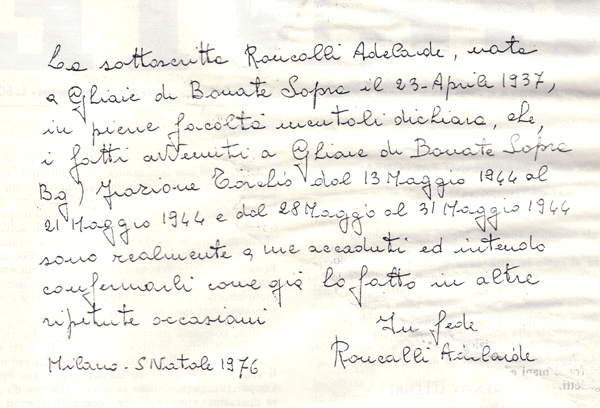 La sottoscritta Roncalli Adelaide, nata
a Ghiaie di Bonate Sopra il 23-Aprile 1937,
in piene facoltà mentali dichiara, che,
i fatti avvenuti a Ghiaie di Bonate Sopra
Bg) frazione Torchio dal 13 Maggio 1944 al
21 Maggio 1944 e dal 28 Maggio al 31 Maggio 1944
sono realmente a me accaduti ed intendo
confermarli come già ho fatto in altre
ripetute occasioni
In fede
Milano - S Natale 1976
Roncalli Adelaide